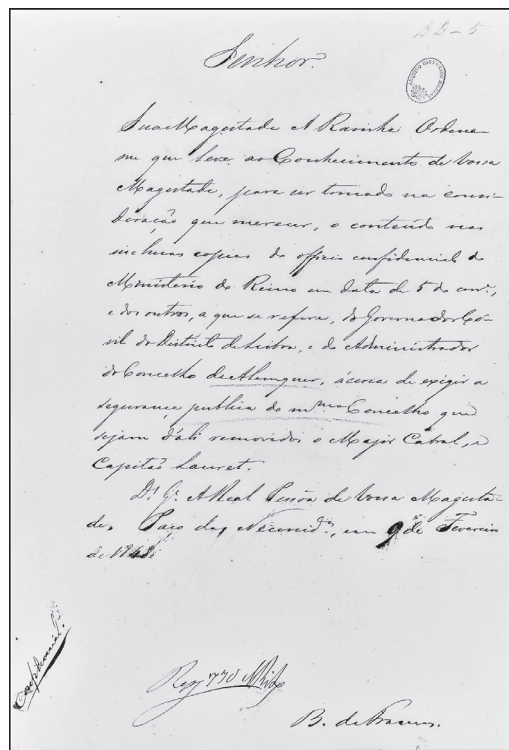 DD-5
Senhor.
Sua Magestade A Rainha Ordena-
me que leve ao Conhecimento de Vossa
Magestade, para ser tomado na consi-
deração que merecer, o contendo nas
inclusas copias do officio confidencial do
Ministerio do Reino em data de 5 do corr.e,
e dos outros, a que se refere, do Governador Ci-
vil do Districto de Lisboa, e do Administrador
do Concelho de Alemquer, ácerca de exigir a
segurança publica do m.mo Concelho que
sejam d'ali removidos o Major Cabral, e
Capitão Lauret.
D.s G.e A Real Pessôa de Vossa Magesta-
de. Paço das Necessid.es, em 9 de Fevereiro
de
Confidencial
Reg 770
B. de Francos.